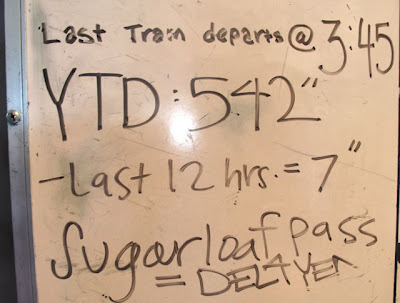 Last Train departs @ 3:45
YTD: 542"
- Last 12 hrs. = 7"
Sugarloaf pass
= DELAYED